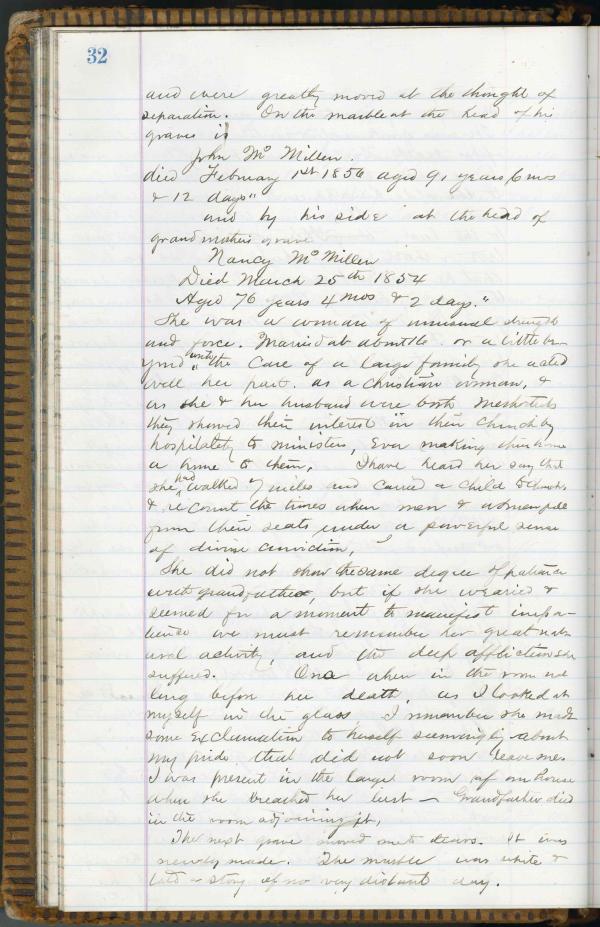 32
and were greatly moved at the thought of
separation. On the marble at the head of his
graves is
John Mc Millen.
died February 1st 1856 aged 91 years 6 mos
& 12 days"
and by his side at the head of
grandmothers grave
Nancy Mc Millen
Died March 25th 1854
Aged 76 years 4 mos & 2 days."
She was a woman of unusual strength
and force. Married at about 16 or a little be-
yond with the care of a large family she acted
well her part. as a Christian woman, &
as she & her husband were both Methodists
they showed their interest in their church by
hospitality to ministers, Ever making their home
a home to them. I have heard her say that
she had walked 7 miles and carried a child to church
& recount the times when men & women fell
from their seats under a powerful sense
of divine conviction,
She did not show the same degree of patience
with grandfather, but if she wearied &
seemed for a moment to manifest impa-
tience we must remember her great nat-
ural activity, and the deep afflictions she
suffered. Once when in the room not
long before her death, as I looked at
myself in the glass, I remember she made
some exclamation to herself seemingly about
my pride, that did not soon leave me.
I was present in the large room of our house
when she breathed her last — Grandfather died
in the room adjoining it,
The next grave moved me to tears. It was
newly made. The marble was white &
told a story of no very distant day.